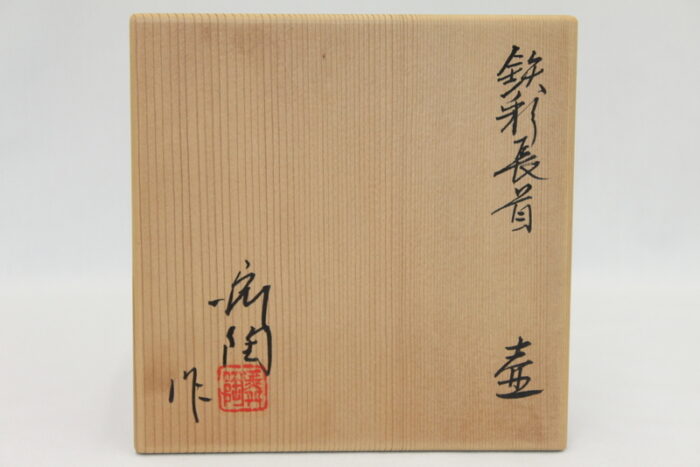 鉄彩長首 壺
陶
作